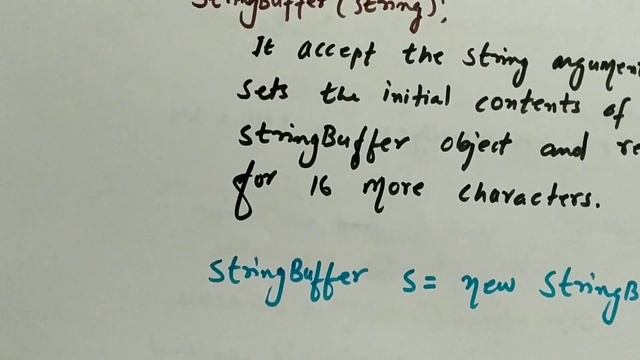 StringBuffer(String);
It accept the string argument
sets the initial contents of
StringBuffer object and re
for 16 more characters.
StringBuffer s= new StringB